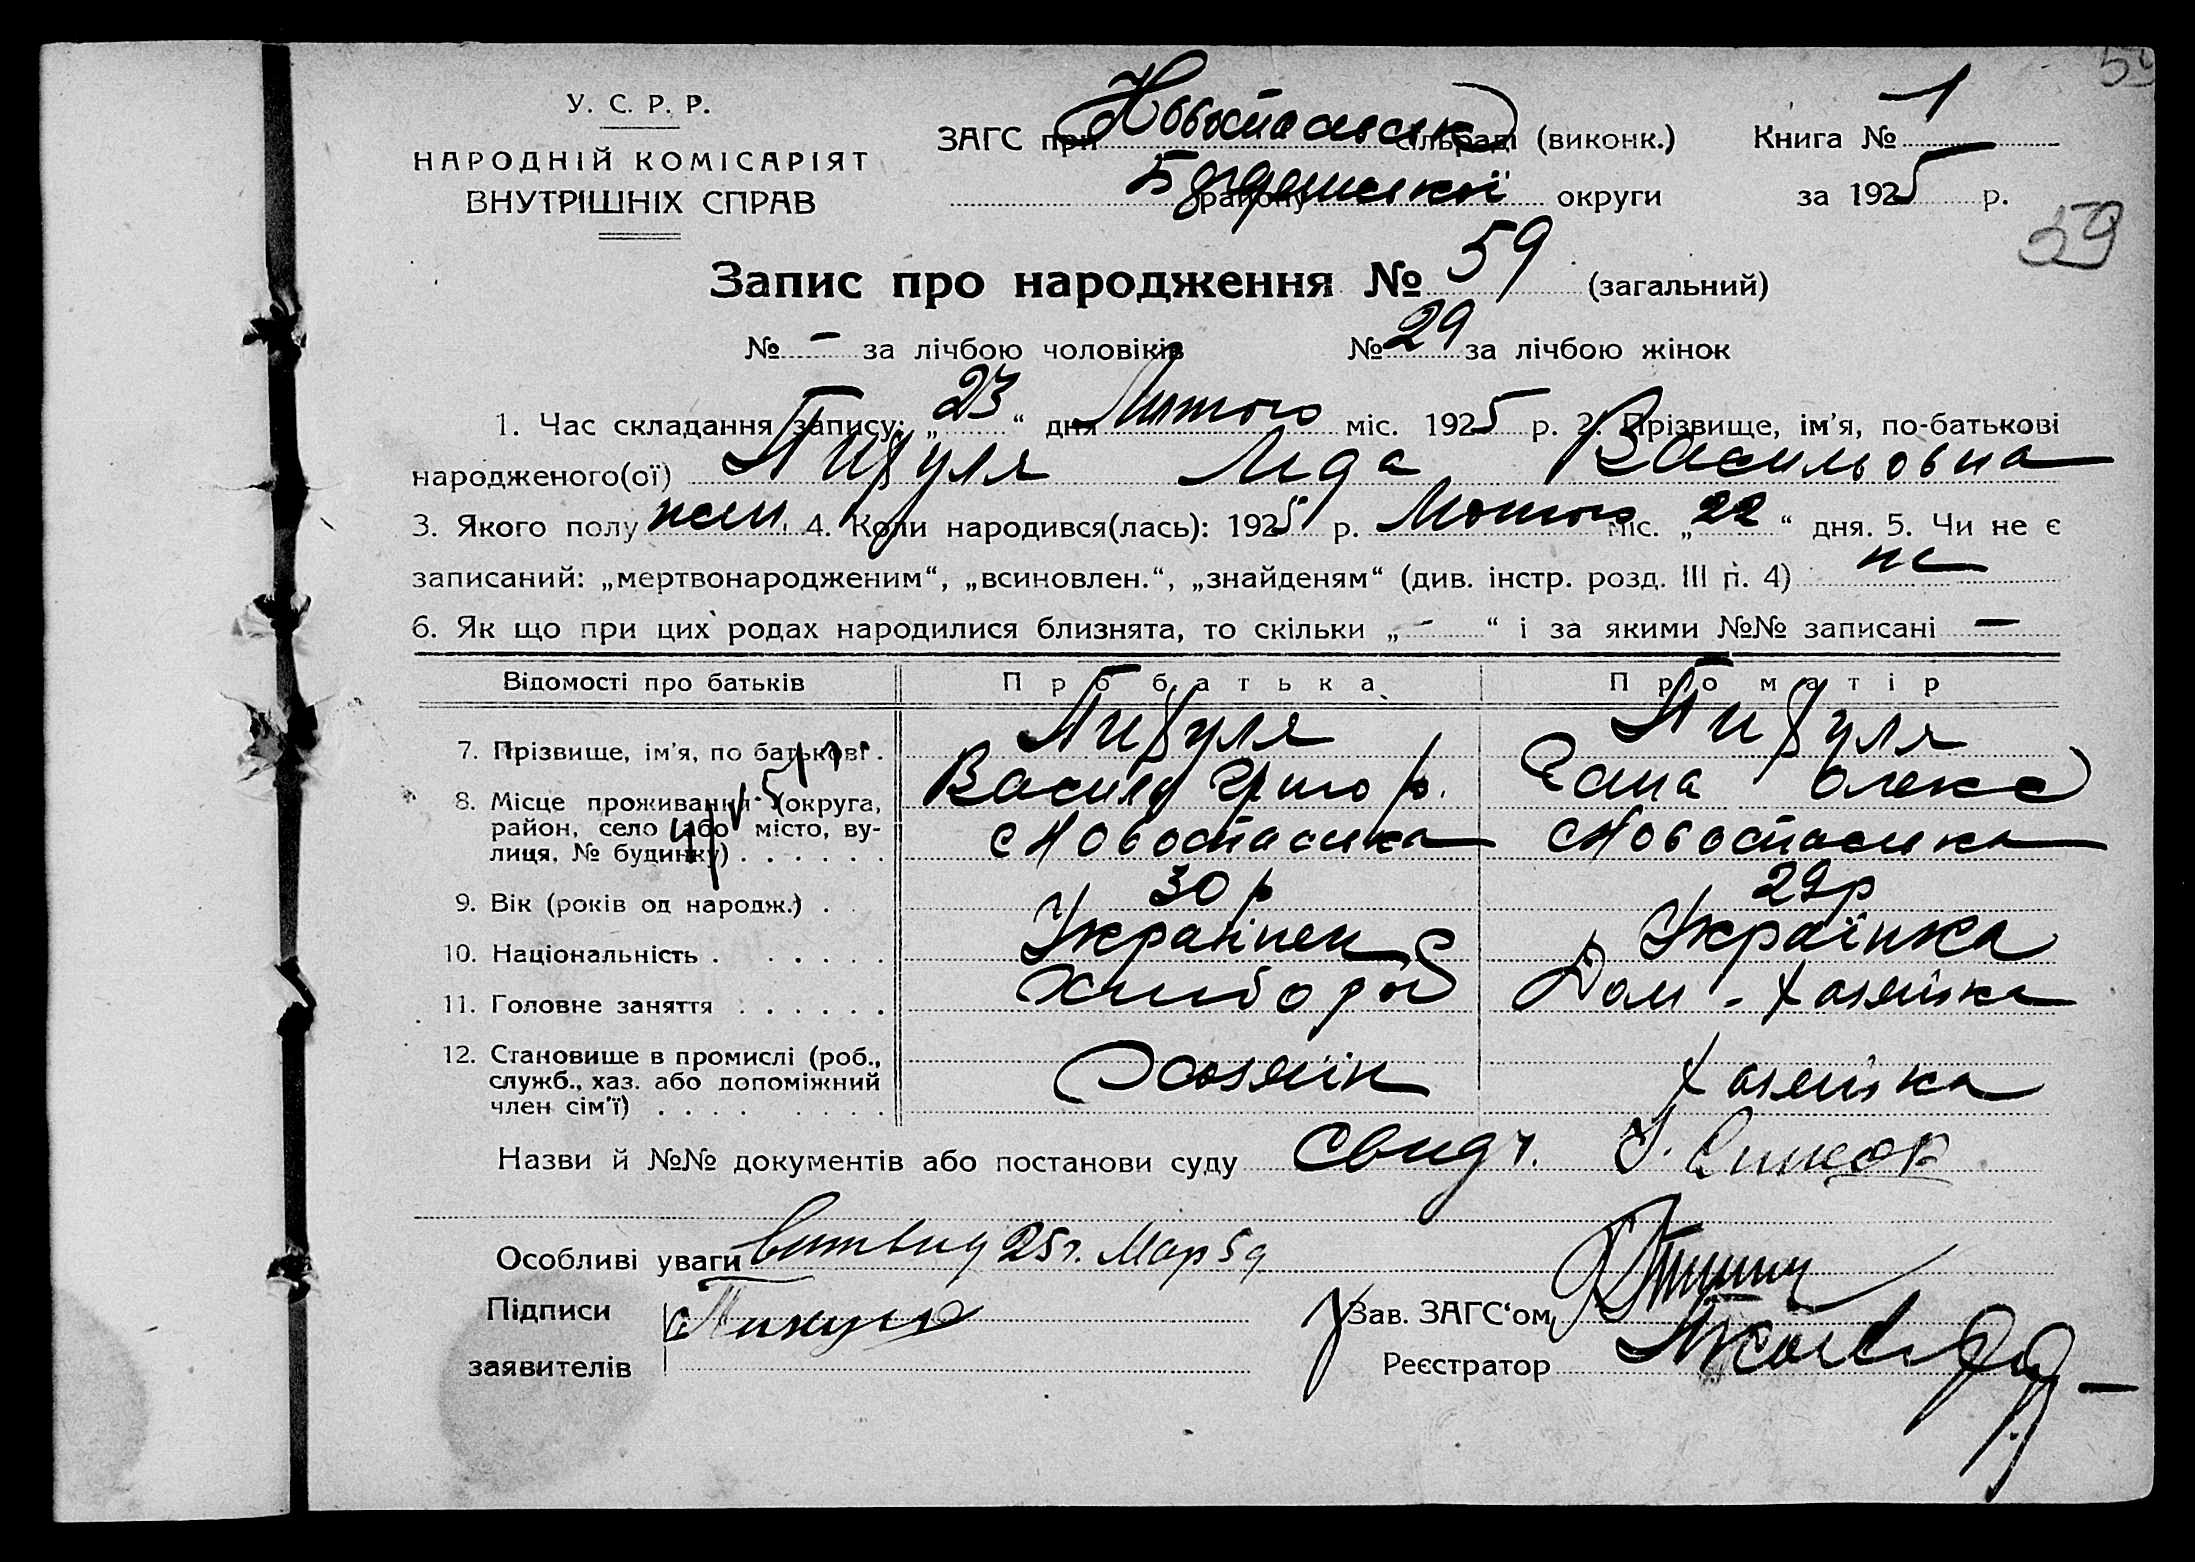 59
У. С. Р. Р.
НАРОДНІЙ КОМІСАРІЯТ
ВНУТРІШНІХ СПРАВ
ЗАГС при Новоспасівск сільраді (виконк.) Книга № 1
району Бердянської округи за 1925 р.
59
Запис про народження № 59 (загальний)
№ - за лічбою чоловіків № 29 за лічбою жінок
1. Час складання запису: „ 23 “ дня Лютого міс. 1925 р. 2. Прізвище, ім'я, по-батькові
народженого(ої) Лида Васильовна
3. Якого полу жен. 4. Коли народився(лась): 1925 р. Лютого міс. „ 22 “ дня. 5. Чи не є
записаний: „мертвонародженим“, „всиновлен.“, „знайденям“ (див. інстр. розд. III п. 4) не
6. Як що при цих родах народилися близнята, то скільки „ - “ і за якими №№ записані —
Відомості про батьків Про батька Про матір
7. Прізвище, ім'я, по батькові.
8. Місце проживання (округа, Василь Григор. Олекс
район, село або місто, ву- с Новоспаська с Новоспаська
лиця, № будинку) . . . . . .
9. Вік (років од народж.) . 30 р 29 р
10. Національність . . . . . . Українец Українка
11. Головне заняття . . . . . . Хлибороб Дом - хазяйка
12. Становище в промислі (роб., Хазяїн Хазяйка
служб., хаз. або допоміжний
член сім'ї) . . . . . . . .
Назви й №№ документів або постанови суду
Особливі уваги 25 г. Мар
Підписи Зав. ЗАГС‘ом
заявителів Реєстратор